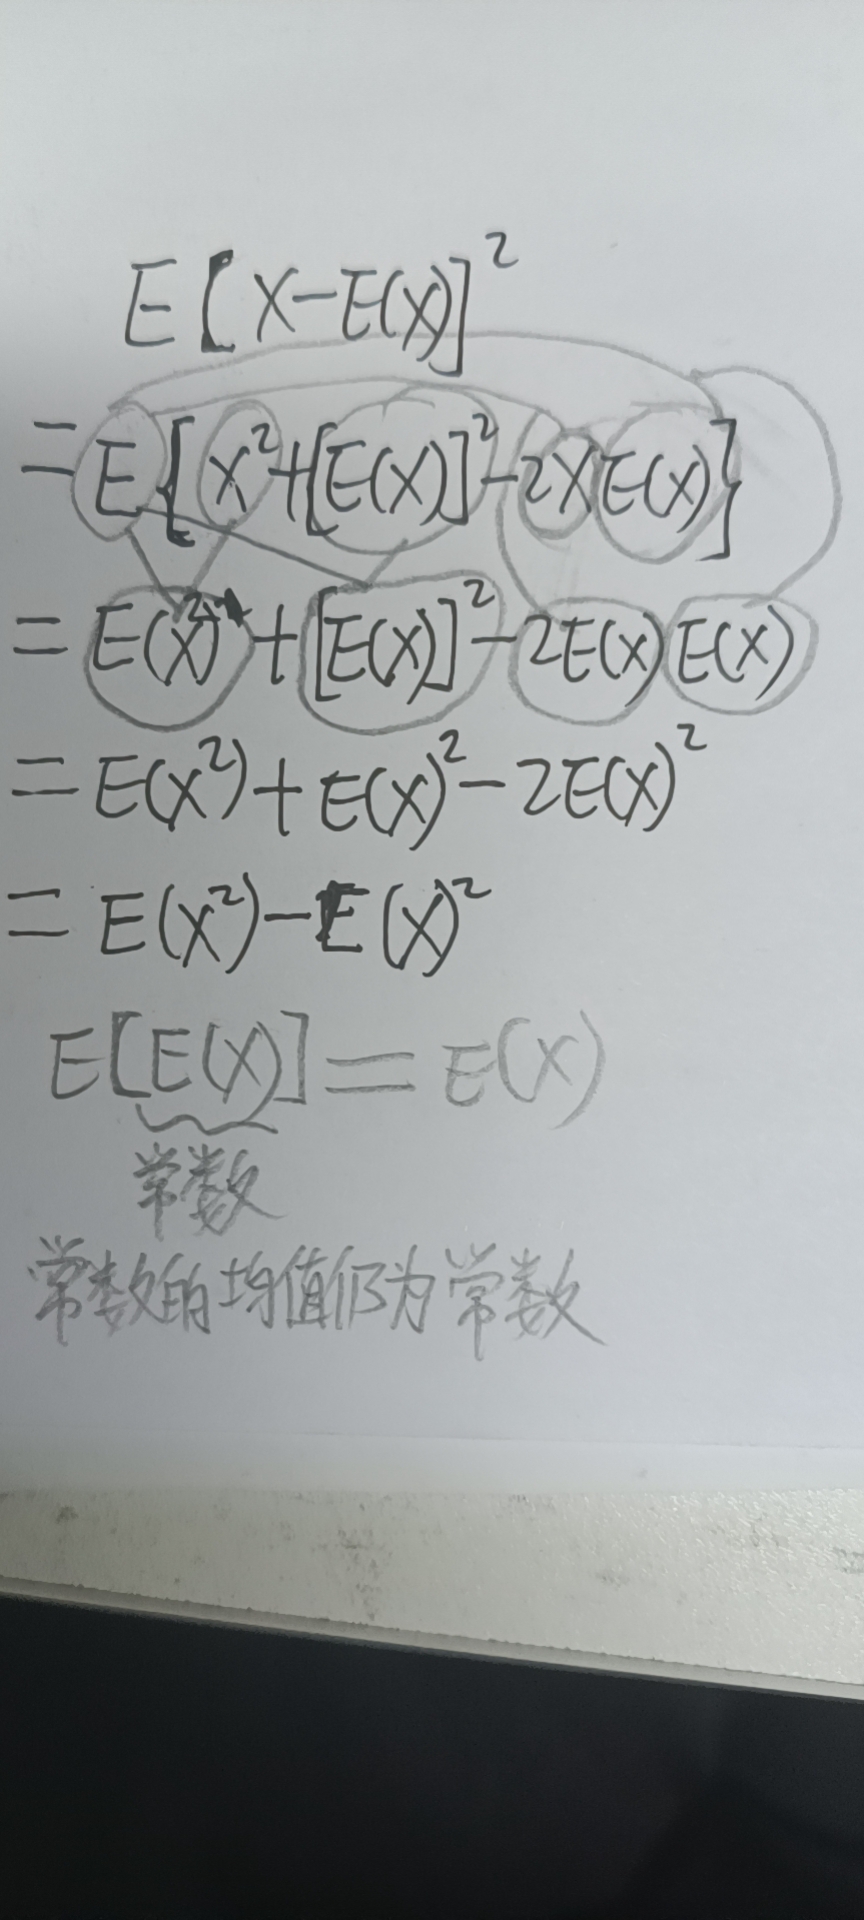 E[X-E(X)]²
=E{X²+[E(X)]²-2XE(X)}
=E(X²)+[E(X)]²-2E(X)E(X)
=E(X²)+E(X)²-2E(X)²
=E(X²)-E(X)²
E[E(X)]=E(X)
常数
常数的均值仍为常数